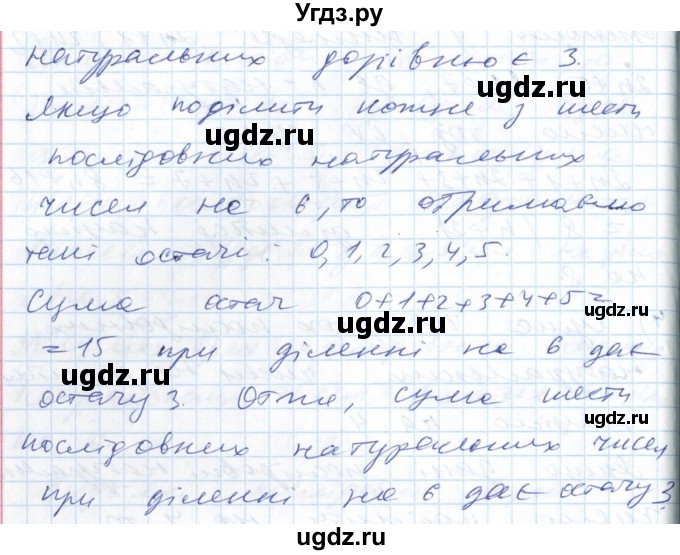 Угдз.ру
натуральних дорівнює 3.
Якщо поділити кожне з шести
ugdz.ru ugdz.ru
послідовних натуральних
чисел на 6, то отримаємо
ugdz.ru
такі остачі: 0, 1, 2, 3, 4, 5.
Сума остач 0+1+2+3+4+5=
ugdz.ru
= 15 при діленні на 6 дає
ugdz.ru
остачу 3. Отже, сума шести
ugdz.ru
послідовних натуральних чисел
при діленні на 6 дає остачу 3.
ugdz.ru